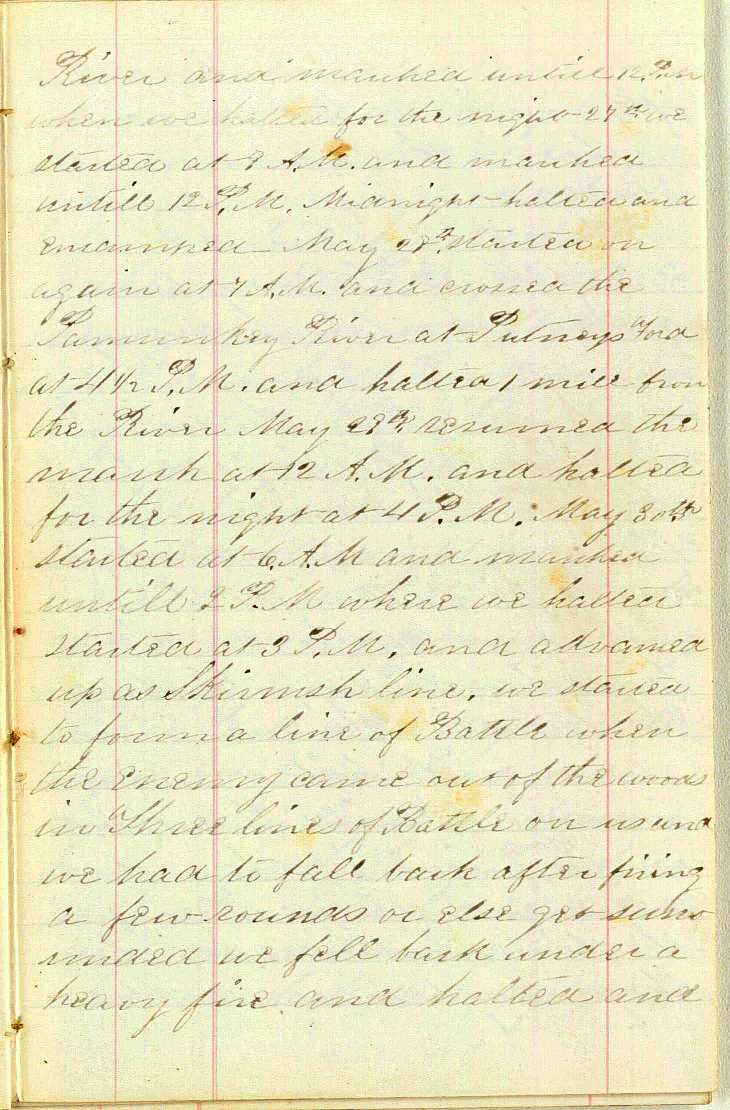 River and marched untill 12 P.M
when we halted for the night 27th we
started at 9 A.M. and marched
untill 12 P.M. Midnight halted and
encamped May 28th. started on
again at 7 A.M. and crossed the
Pamunkey River at Putneys Ford
at 4 1/2 P.M. and halted 1 mile from
the River May 29th. resumed the
march at 12 A.M. and halted
for the night at 4 P.M. May 30th
started at 6 A.M and marched
untill 2 P.M where we halted
started at 3 P.M. and advanced
up as Skirmsh line. we started
to form a line of Battle when
the enemy came out of the woods
in Three lines of Battle on us and
we had to fall back after firing
a few rounds or else get surro
unded we fell back under a
heavy fire and halted and